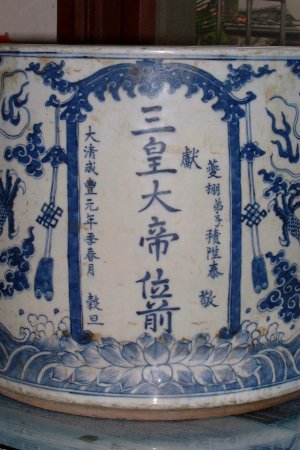 菱弟子積陞泰 敬
獻
三皇大帝位前
大清咸豐元年季春月 穀旦